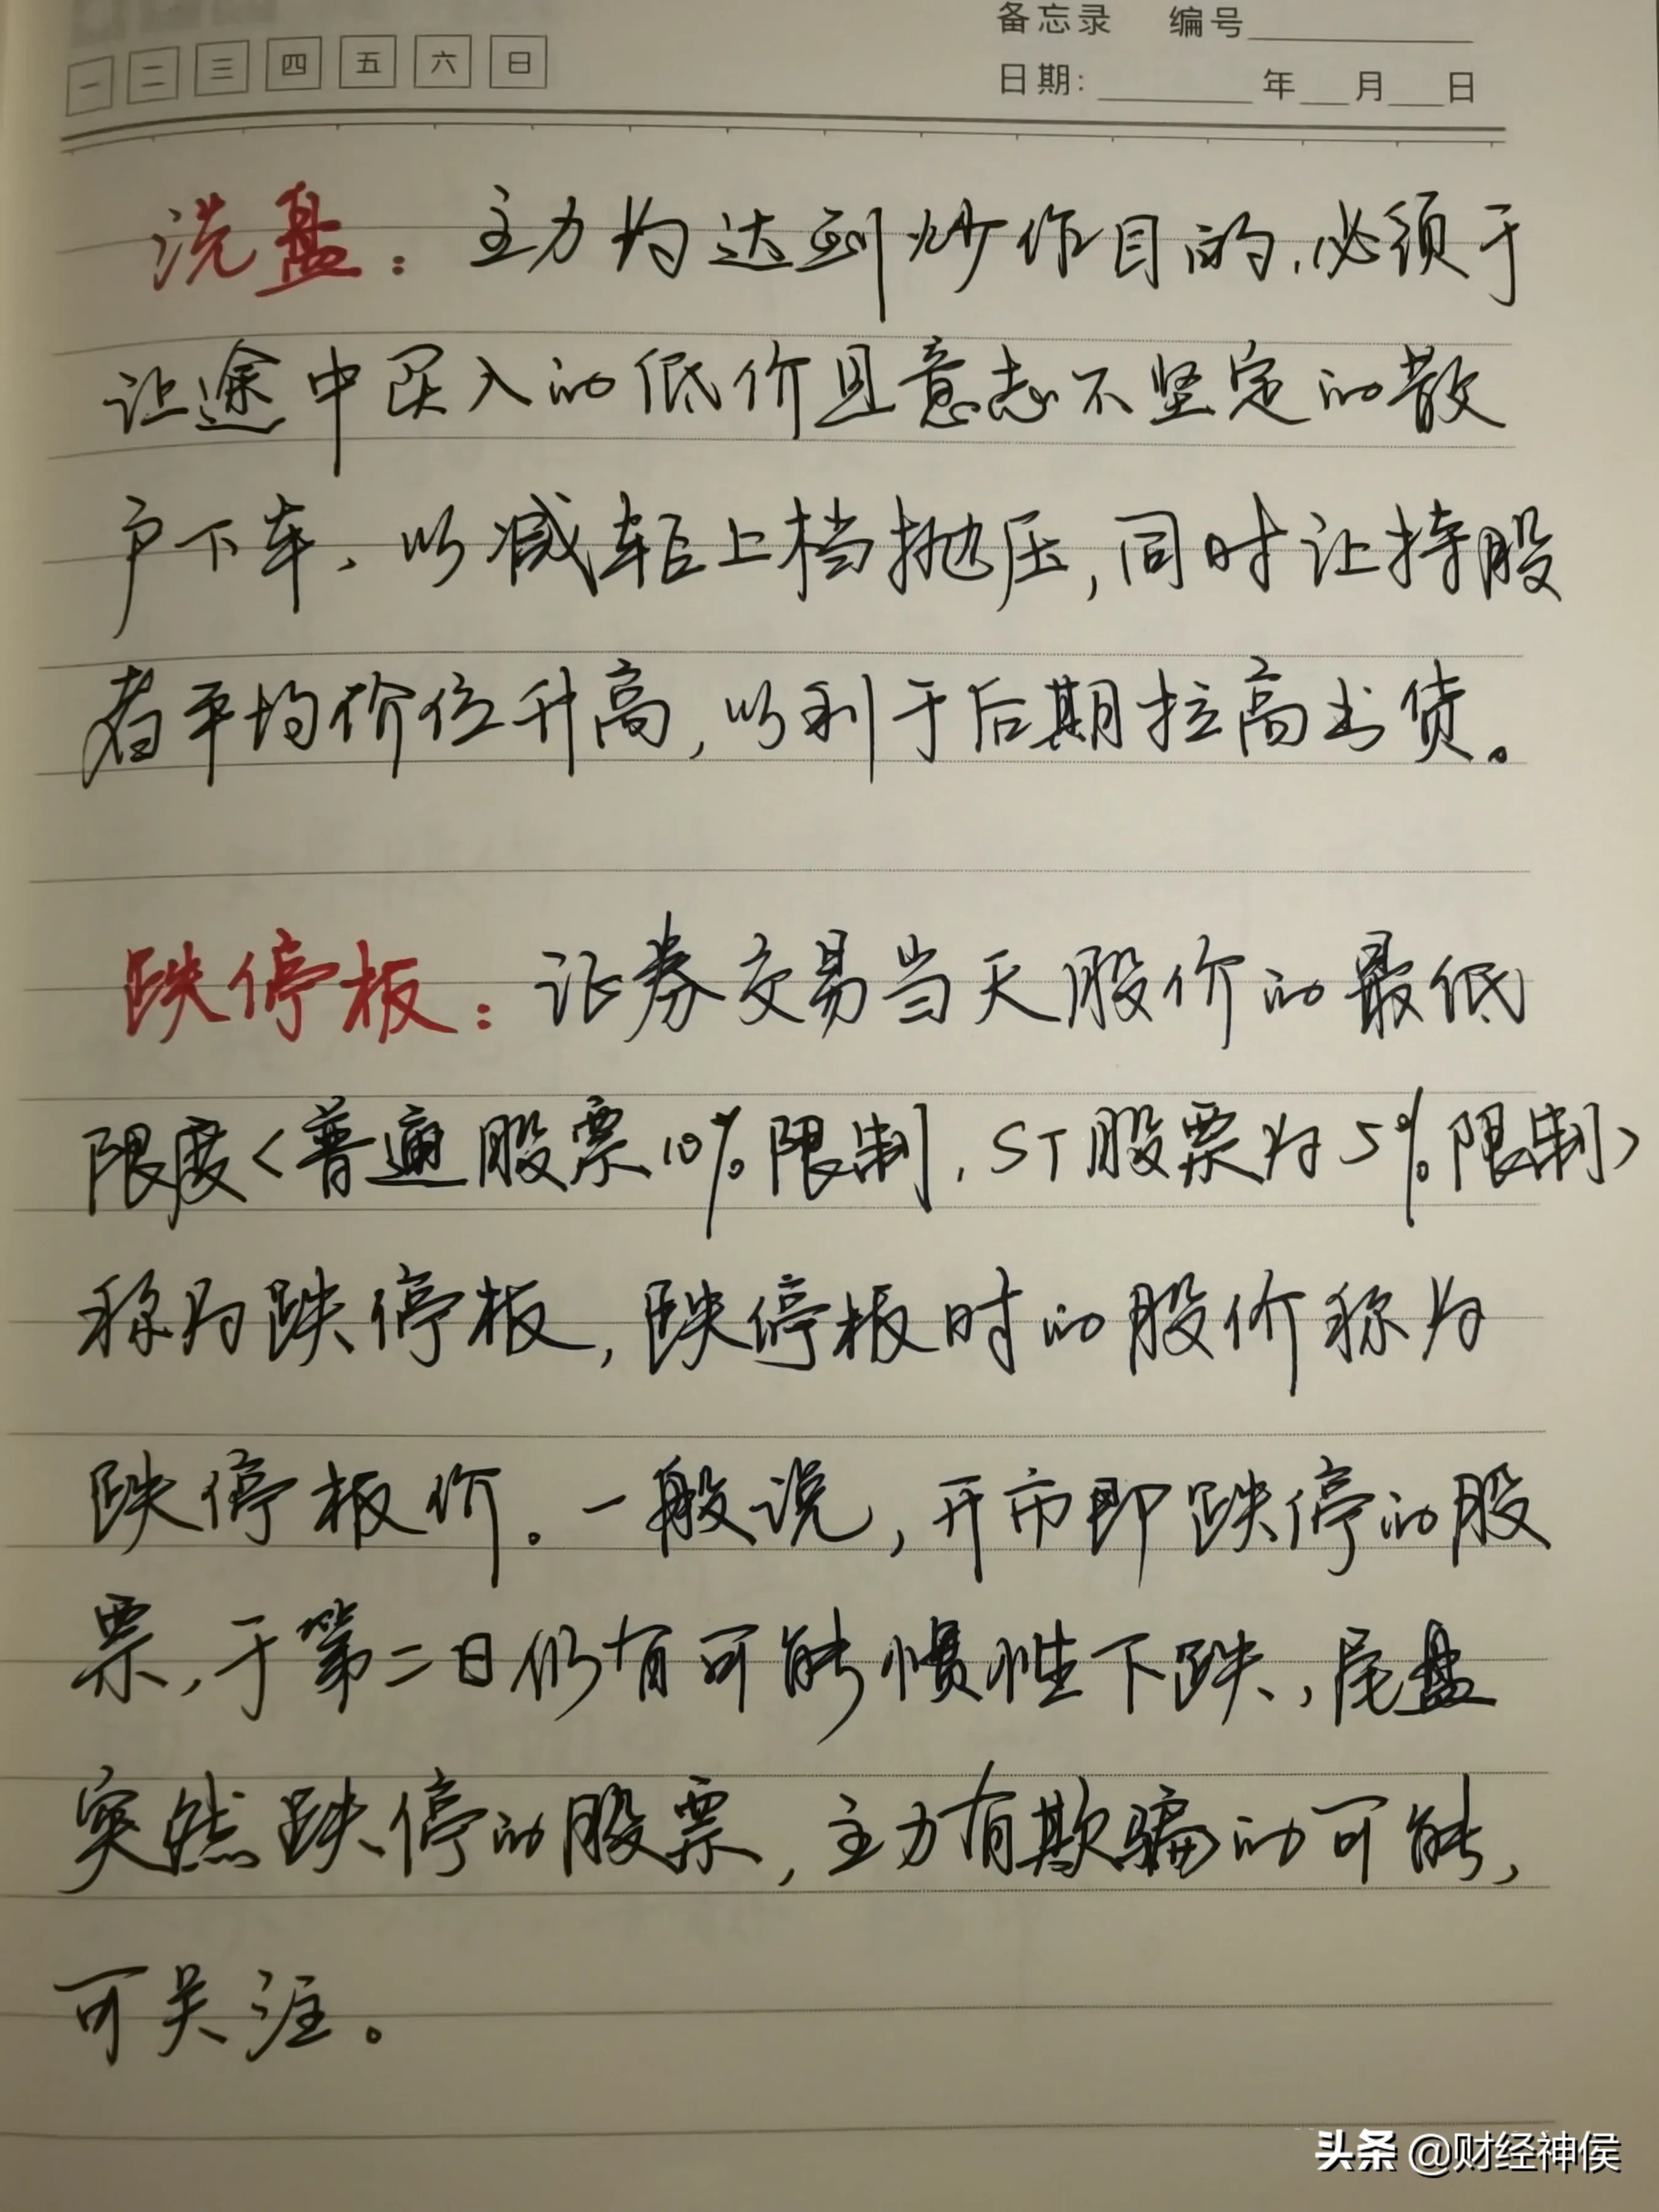 备忘录 编号
一 二 三 四 五 六 日
日期: 年 月 日
洗盘：主力为达到炒作目的，必须于
让途中买入的低价且意志不坚定的散
户下车、以减轻上档抛压，同时让持股
者平均价位升高，以利于后期拉高出货。
跌停板：证券交易当天股价的最低
限度<普通股票10%限制，ST股票为5%限制>
称为跌停板，跌停板时的股价称为
跌停板价。一般说，开市即跌停的股
票，于第二日仍有可能惯性下跌，尾盘
突然跌停的股票，主力有欺骗的可能，
可关注。
头条 @财经神侯